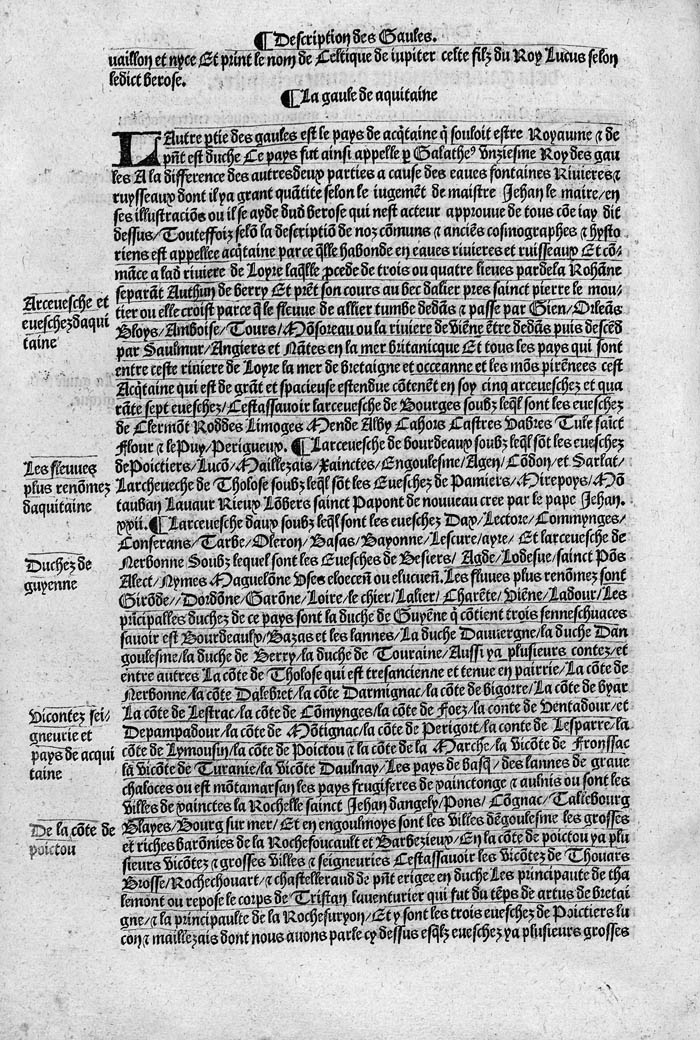 ¶Description des Gaules.
uaillon et nyce Et print le nom de Celtique de iupiter celte filz du Roy Lucus selon
ledict berose.
¶La gaule de aquitaine
LAutre ptie des gaules est le pays de acq̃taine q̃ souloit estre Royaume ⁊ de
pñt est duche Ce pays fut ainsi appelle p Galatheꝰ vnziesme Roy des gau
les A la difference des autres deux parties a cause des eaues fontaines Riuieres ⁊
ruysseaux dont il ya grant quãtite selon le iugemẽt de maistre Jehan le maire/en
ses illustraciõs ou il se ayde dud berose qui nest acteur approuue de tous cõe iay dit
dessus/Touteffoiz selõ la descriptiõ de noz cõmuns ⁊ anciẽs cosmographes ⁊ hysto
riens est appellee acq̃taine parce q̃lle habonde en eaues riuieres et ruisseaux Et cõ⸗
mãce a lad riuiere de Loyre laq̃lle pcede de trois ou quatre lieues pardela Rohãne
separãt Authun de berry Et prẽt son cours au bec dalier pres sainct pierre le mou⸗
tier ou elle croist parce q̃ le fleuue de allier tumbe dedãs ⁊ passe par Gien/Orleãs
Bloys/Amboise/Tours/Mõsoreau ou la riuiere de viẽne ẽtre dedãs puis descẽd
par Saulmur/Angiers et Nãtes en la mer britanicque Et tous les pays qui sont
entre ceste riuiere de Loyre la mer de bretaigne et occeanne et les mõs pirẽnees cest
Acq̃taine qui est de grãt et spacieuse estendue cõtenẽt en soy cinq arceueschez et qua
rãte sept eueschez/Cestassauoir larceuesche de Bourges soubz leq̃l sont les eueschez
de Clermõt Roddes Limoges Mende Alby Cahors Castres Vabres Tule saict
Flour ⁊ le Puy/Perigueux. ¶Larceuesche de bourdeaux soubz leq̃l sõt les eueschez
de Poictiers/Lucõ/Maillezais/Xainctes/Engoulesme/Agen/Cõdon/et Sarlat/
Larcheueche de Tholose soubz leq̃l sõt les Eueschez de Pamiers/Mirepoys/Mõ
tauban Lauaur Rieux Lõbers sainct Papont de nouueau cree par le pape Jehan.
xxii. ¶Larceuesche daux soubz leq̃l sont les eueschez Dax/Lectore/Commynges/
Conserans/Tarbe/Oleron/Basas/Bayonne/Lescure/ayre/ Et larceuesche de
Nerbonne Soubz lequel sont les Euesches de Besiers/ Agde/Lodesue/sainct Põs
Alect/Nymes Maguelõne Vses eloeceñ ou elucueñ. Les fluues plus renõmez sont
Girõde//Dordõne/Garõne/Loire/le chier/Lalier/ Charẽte/Viẽne/Ladour/Les
prĩcipalles duchez de ce pays sont la duche de Guyẽne q̃ cõtient trois senneschuaces
sauoir est Bourdeaulx/Bazas et les lannes/La duche Dauuergne/la duche Dan
goulesme/la duche de Berry/la duche de Touraine/Aussi ya plusieurs contez/et
entre autres La cõte de Tholose qui est tresancienne et tenue en pairrie/La cõte de
Nerbonne/la cõte Dalebret/la cõte Darmignac/la cõte de bigorre/La cõte de byar
La cõte de Lestrac/la cõte de Cõmynges/la cõte de Foez/la conte de Ventadour/et
Depampadour/la cõte de Mõtignac/la cõte de Perigort/la conte de Lesparre/la
cõte de Lymousin/la cõte de Poictou ⁊ la cõte de la Marche/la vicõte de Fronssac
la vicõte de Turanie/la vicõte Daulnay/Les pays de basq̃/des lannes de graue
chaloces ou est mõtamarsan les pays frugiferes de xainctonge ⁊ aulnis ou sont les
villes de xainctes la Rochelle sainct Jehan dangely/Pons/ Cõgnac/Talicbourg
Blayes/Bourg sur mer/ Et en engoulmoys sont les villes dẽgoulesme les grosses
et riches barõnies de la Rochefoucault et Barbezieux/En la cõte de poictou ya plu
sieurs vicõtez ⁊ grosses villes ⁊ seigneuries Cestassauoir les vicõtez de Thouars
Brosse/Rochechouart/⁊ chastelleraud de pñt erigee en duche Les principaute de tha
lemont ou repose le corps de Tristan lauenturier qui fut du tẽps de artus de bretai
gne/⁊ la principaulte de la Rochesuryon/Et y sont les trois eueschez de Poictiers lu
con ⁊ maillezais dont nous auons parle cy dessus esq̃lz eueschez ya plusieurs grosses
Arceuesche et
eueschez daqui
taine
Les fleuues
plus renõmez
daquitaine
Duchez de
guyenne
Vicontez sei⸗
gneurie et
pays de acqui
taine
De la cõte de
poictou